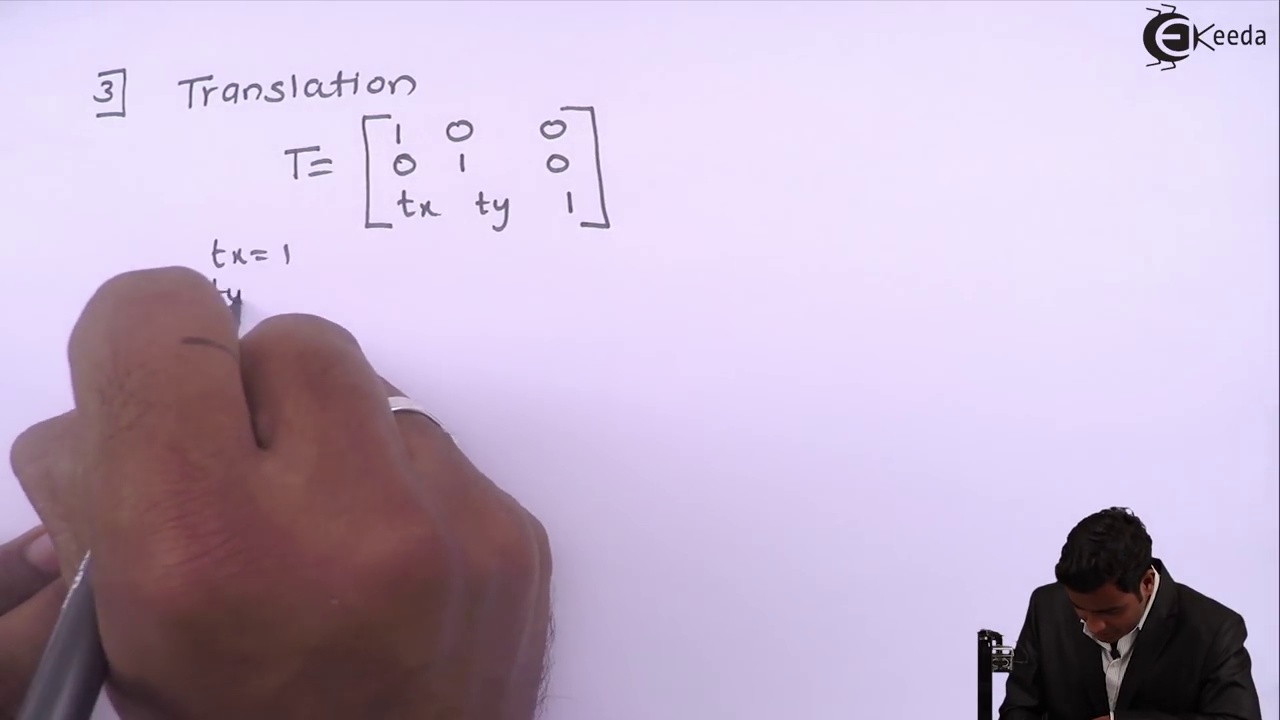 EKeeda
3] Translation
T= [ 1 0 0
0 1 0
tx ty 1 ]
tx = 1
ty